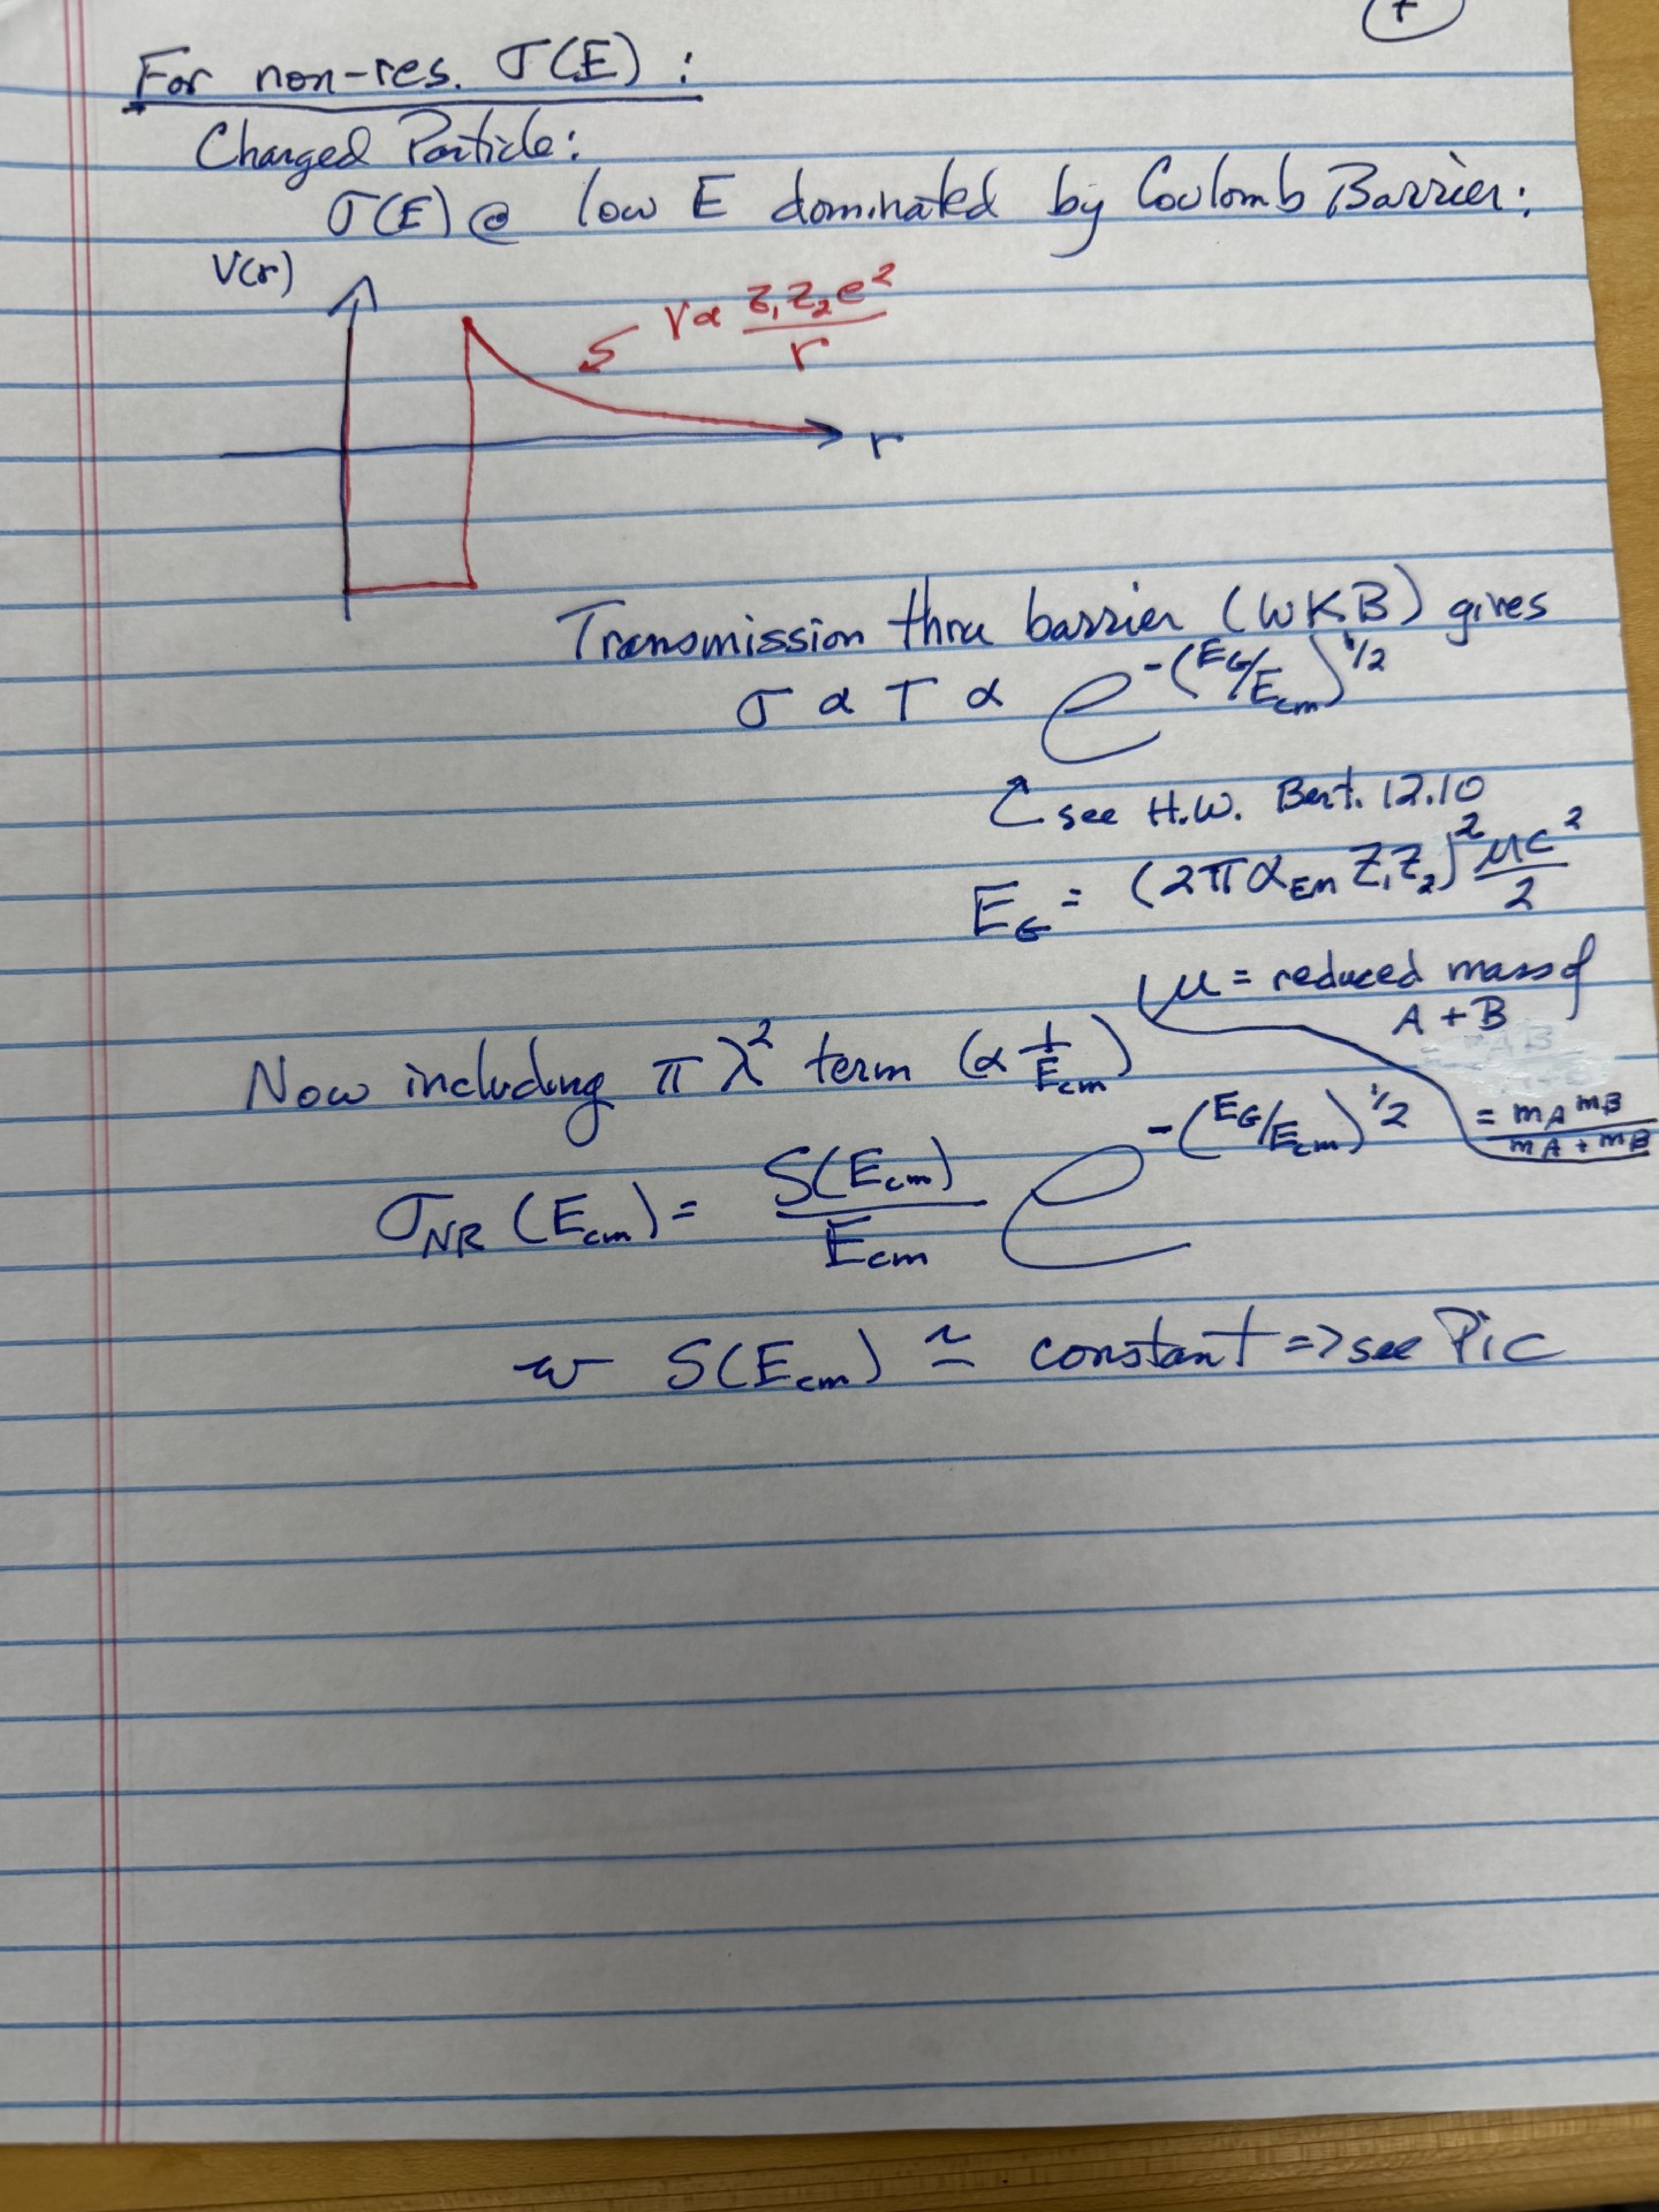 For non-res. σ(E) :
Charged Particle:
σ(E) @ low E dominated by Coulomb Barrier:
V(r)
V ∝ Z₁Z₂e²/r
r
Transmission thru barrier (WKB) gives
σ ∝ T ∝ e^-(E_G/E_cm)^1/2
see H.W. Bert. 12.10
E_G = (2πα_EM Z₁Z₂)² μc²/2
μ = reduced mass of
A + B
= m_A m_B / m_A + m_B
Now including πƛ² term (∝ 1/E_cm)
σ_NR (E_cm) = S(E_cm)/E_cm e^-(E_G/E_cm)^1/2
w S(E_cm) ≃ constant => see Pic